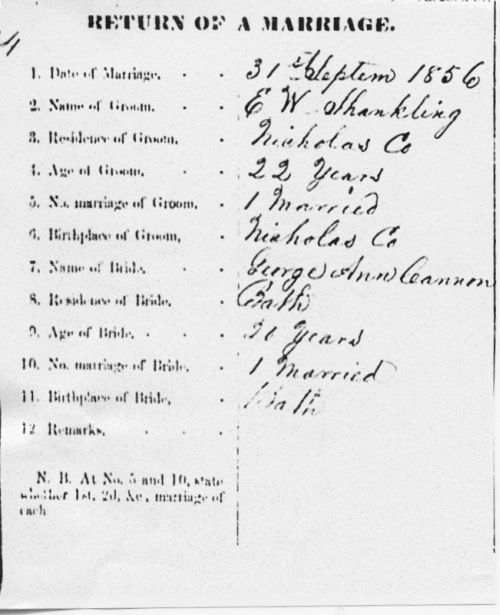 RETURN OF A MARRIAGE.
1. Date of Marriage, - - 31st Septem 1856
2. Name of Groom, - - E W Shankling
3. Residence of Groom, - Nicholas Co
4. Age of Groom, - - 22 Years
5. No. marriage of Groom, - 1 Married
6. Birthplace of Groom, - Nicholas Co
7. Name of Bride, - - George Ann Cannon
8. Residence of Bride, - Bath
9. Age of Bride, - - - Years
10. No. marriage of Bride, - 1 Married
11. Birthplace of Bride, - Bath
12 Remarks, - - -
N. B. At No. 5 and 10, state
whether 1st, 2d, &c, marriage of
each